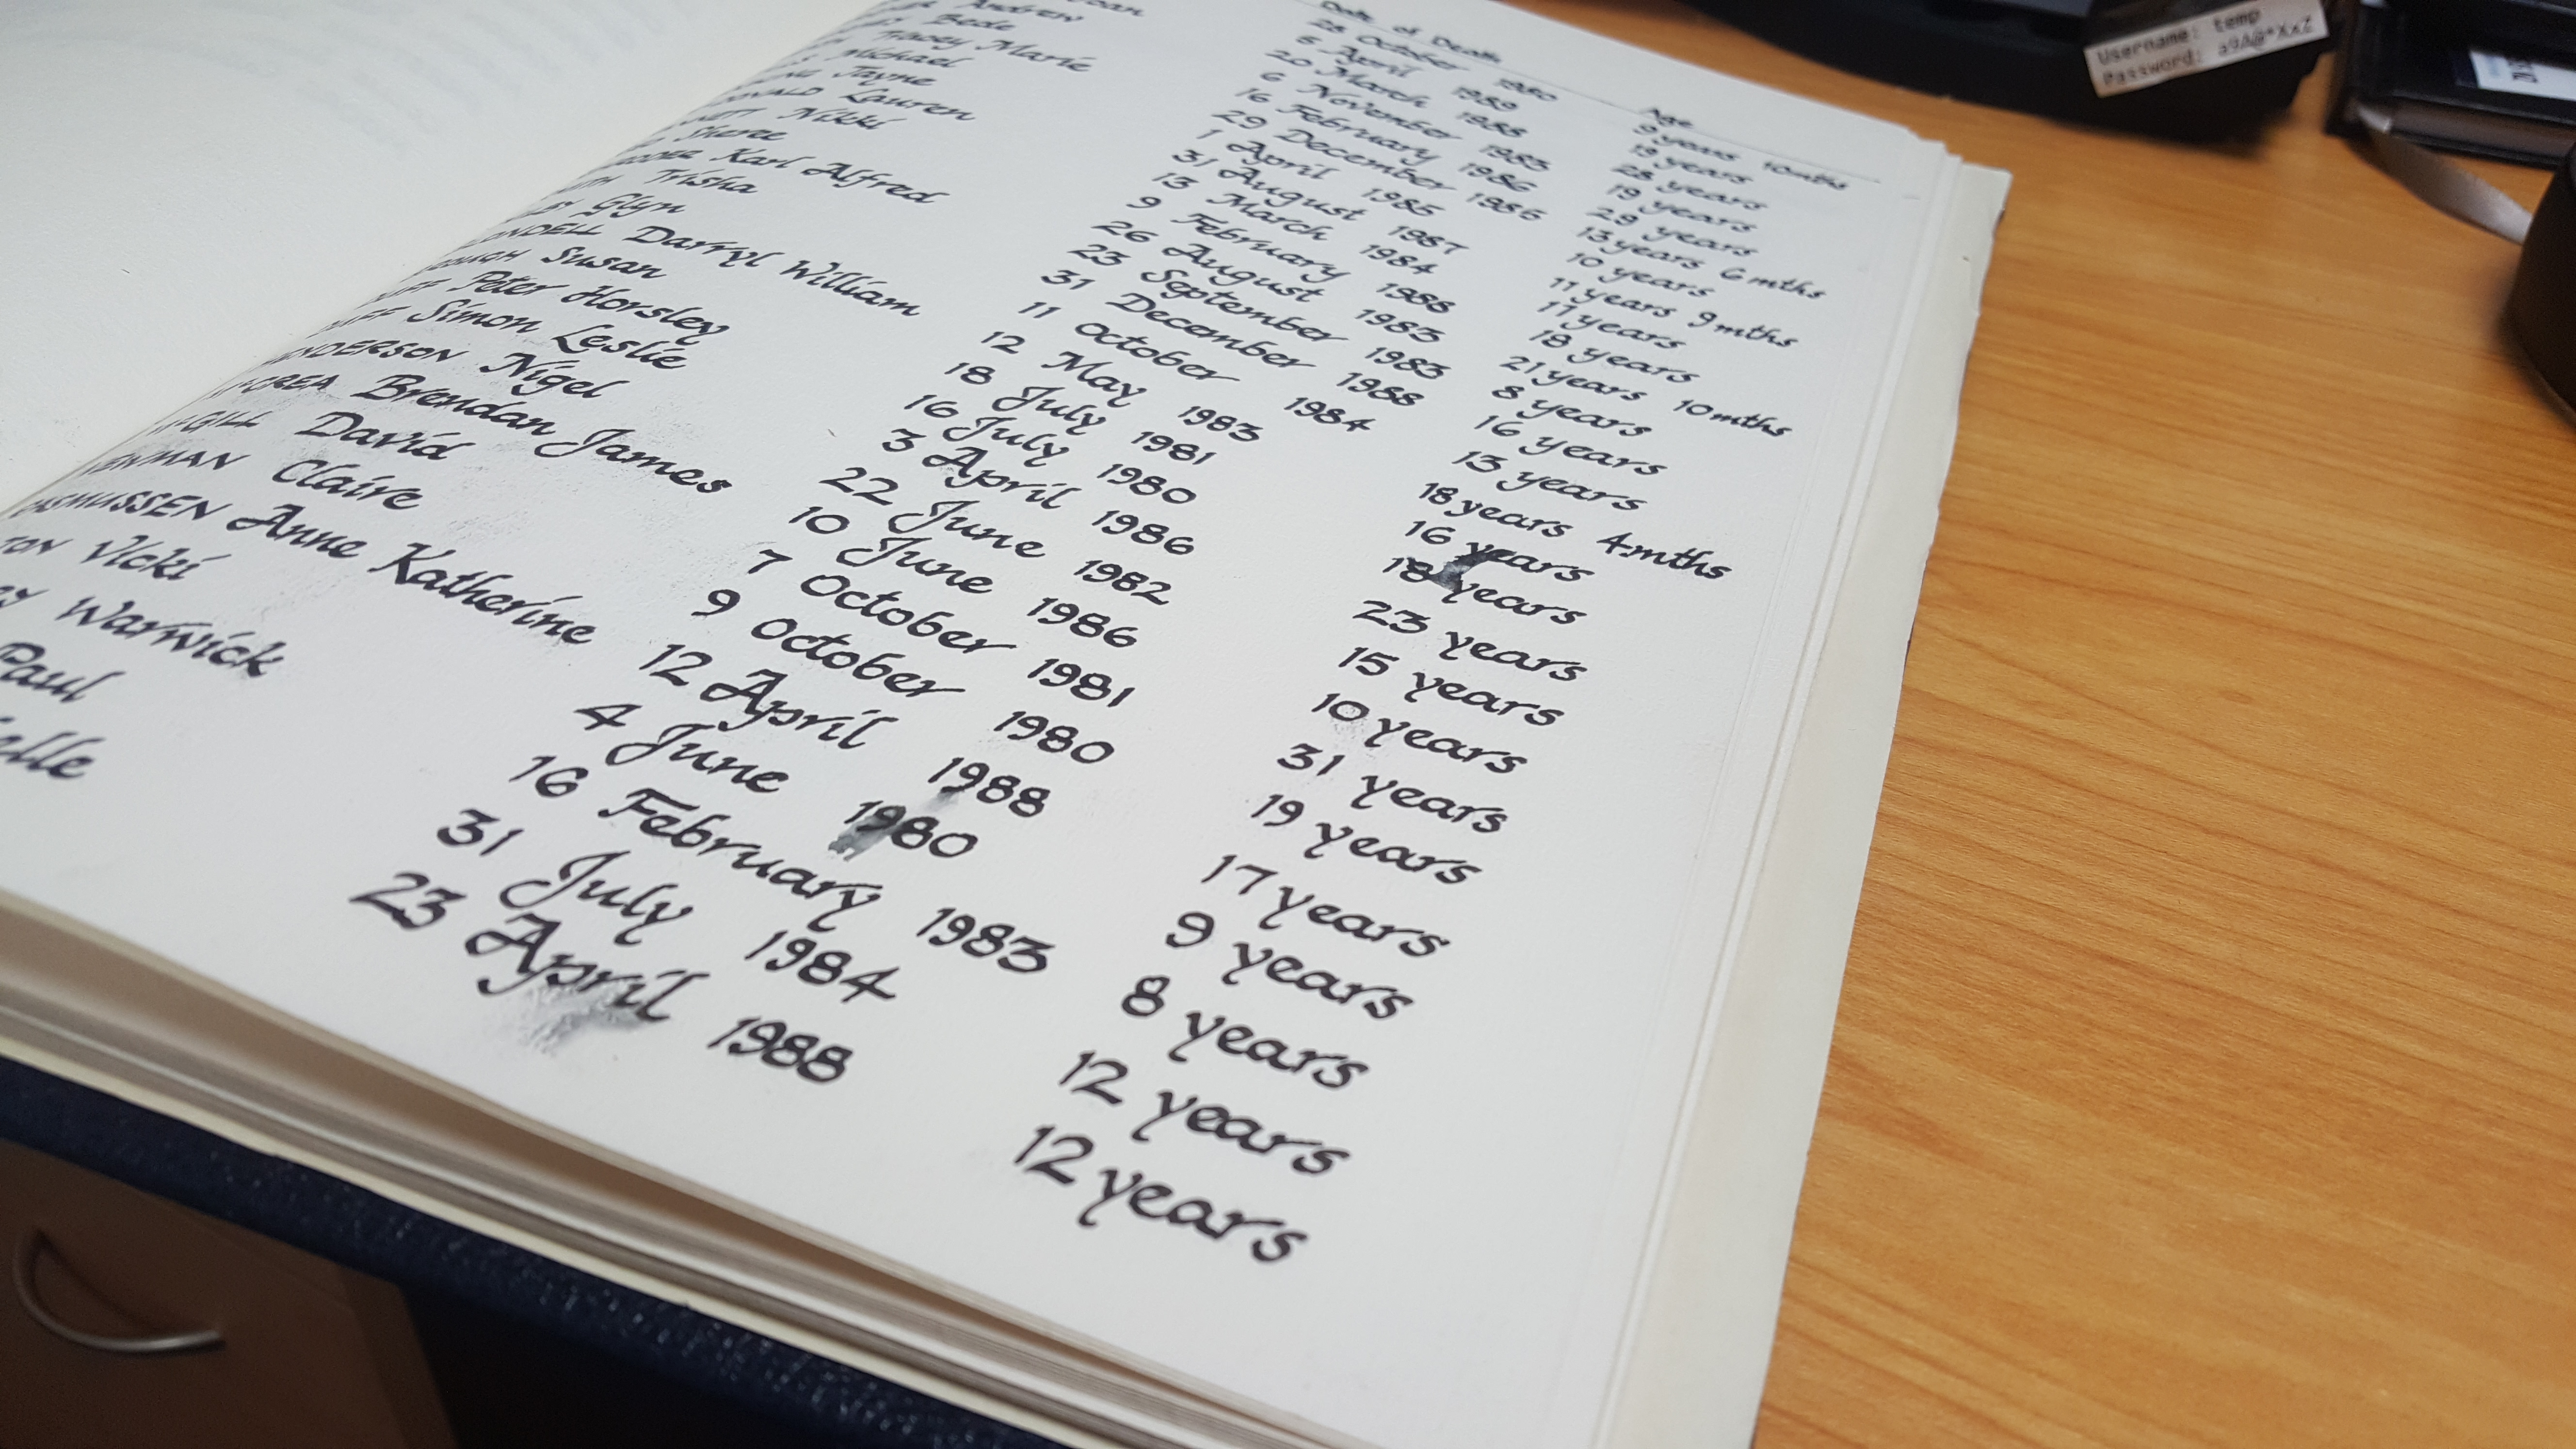 Date of Death Age
28 October 1980 9 years 10mths
6 April 1989 19 years
Joan 20 March 1988 28 years
Andrew 6 November 1983 19 years
Bede 16 February 1986 29 years
Tracey Marie 29 December 1985 13 years 6 mths
Michael 1 April 1985 10 years
Jayne 31 August 1987 11 years 9 mths
Lauren 13 March 1984 17 years
Nikki 9 February 1988 18 years
Sheree 26 August 1983 21 years 10 mths
Karl Alfred 23 September 1983 8 years
Trisha 31 December 1988 16 years
Glyn 11 October 1984 13 years
Darryl William 12 May 1983 18 years 4 mths
Susan 18 July 1981 16 years
Peter Horsley 16 July 1980 18 years
Simon Leslie 3 April 1986 23 years
NDERSON Nigel 22 June 1982 15 years
Brendan James 10 June 1986 10 years
GILL David 7 October 1981 31 years
EWMAN Claire 9 October 1980 19 years
ASMUSSEN Anne Katherine 12 April 1988 17 years
TON Vicki 4 June 1980 9 years
Warwick 16 February 1983 8 years
Paul 31 July 1984 12 years
elle 23 April 1988 12 years
Username: temp
Password: